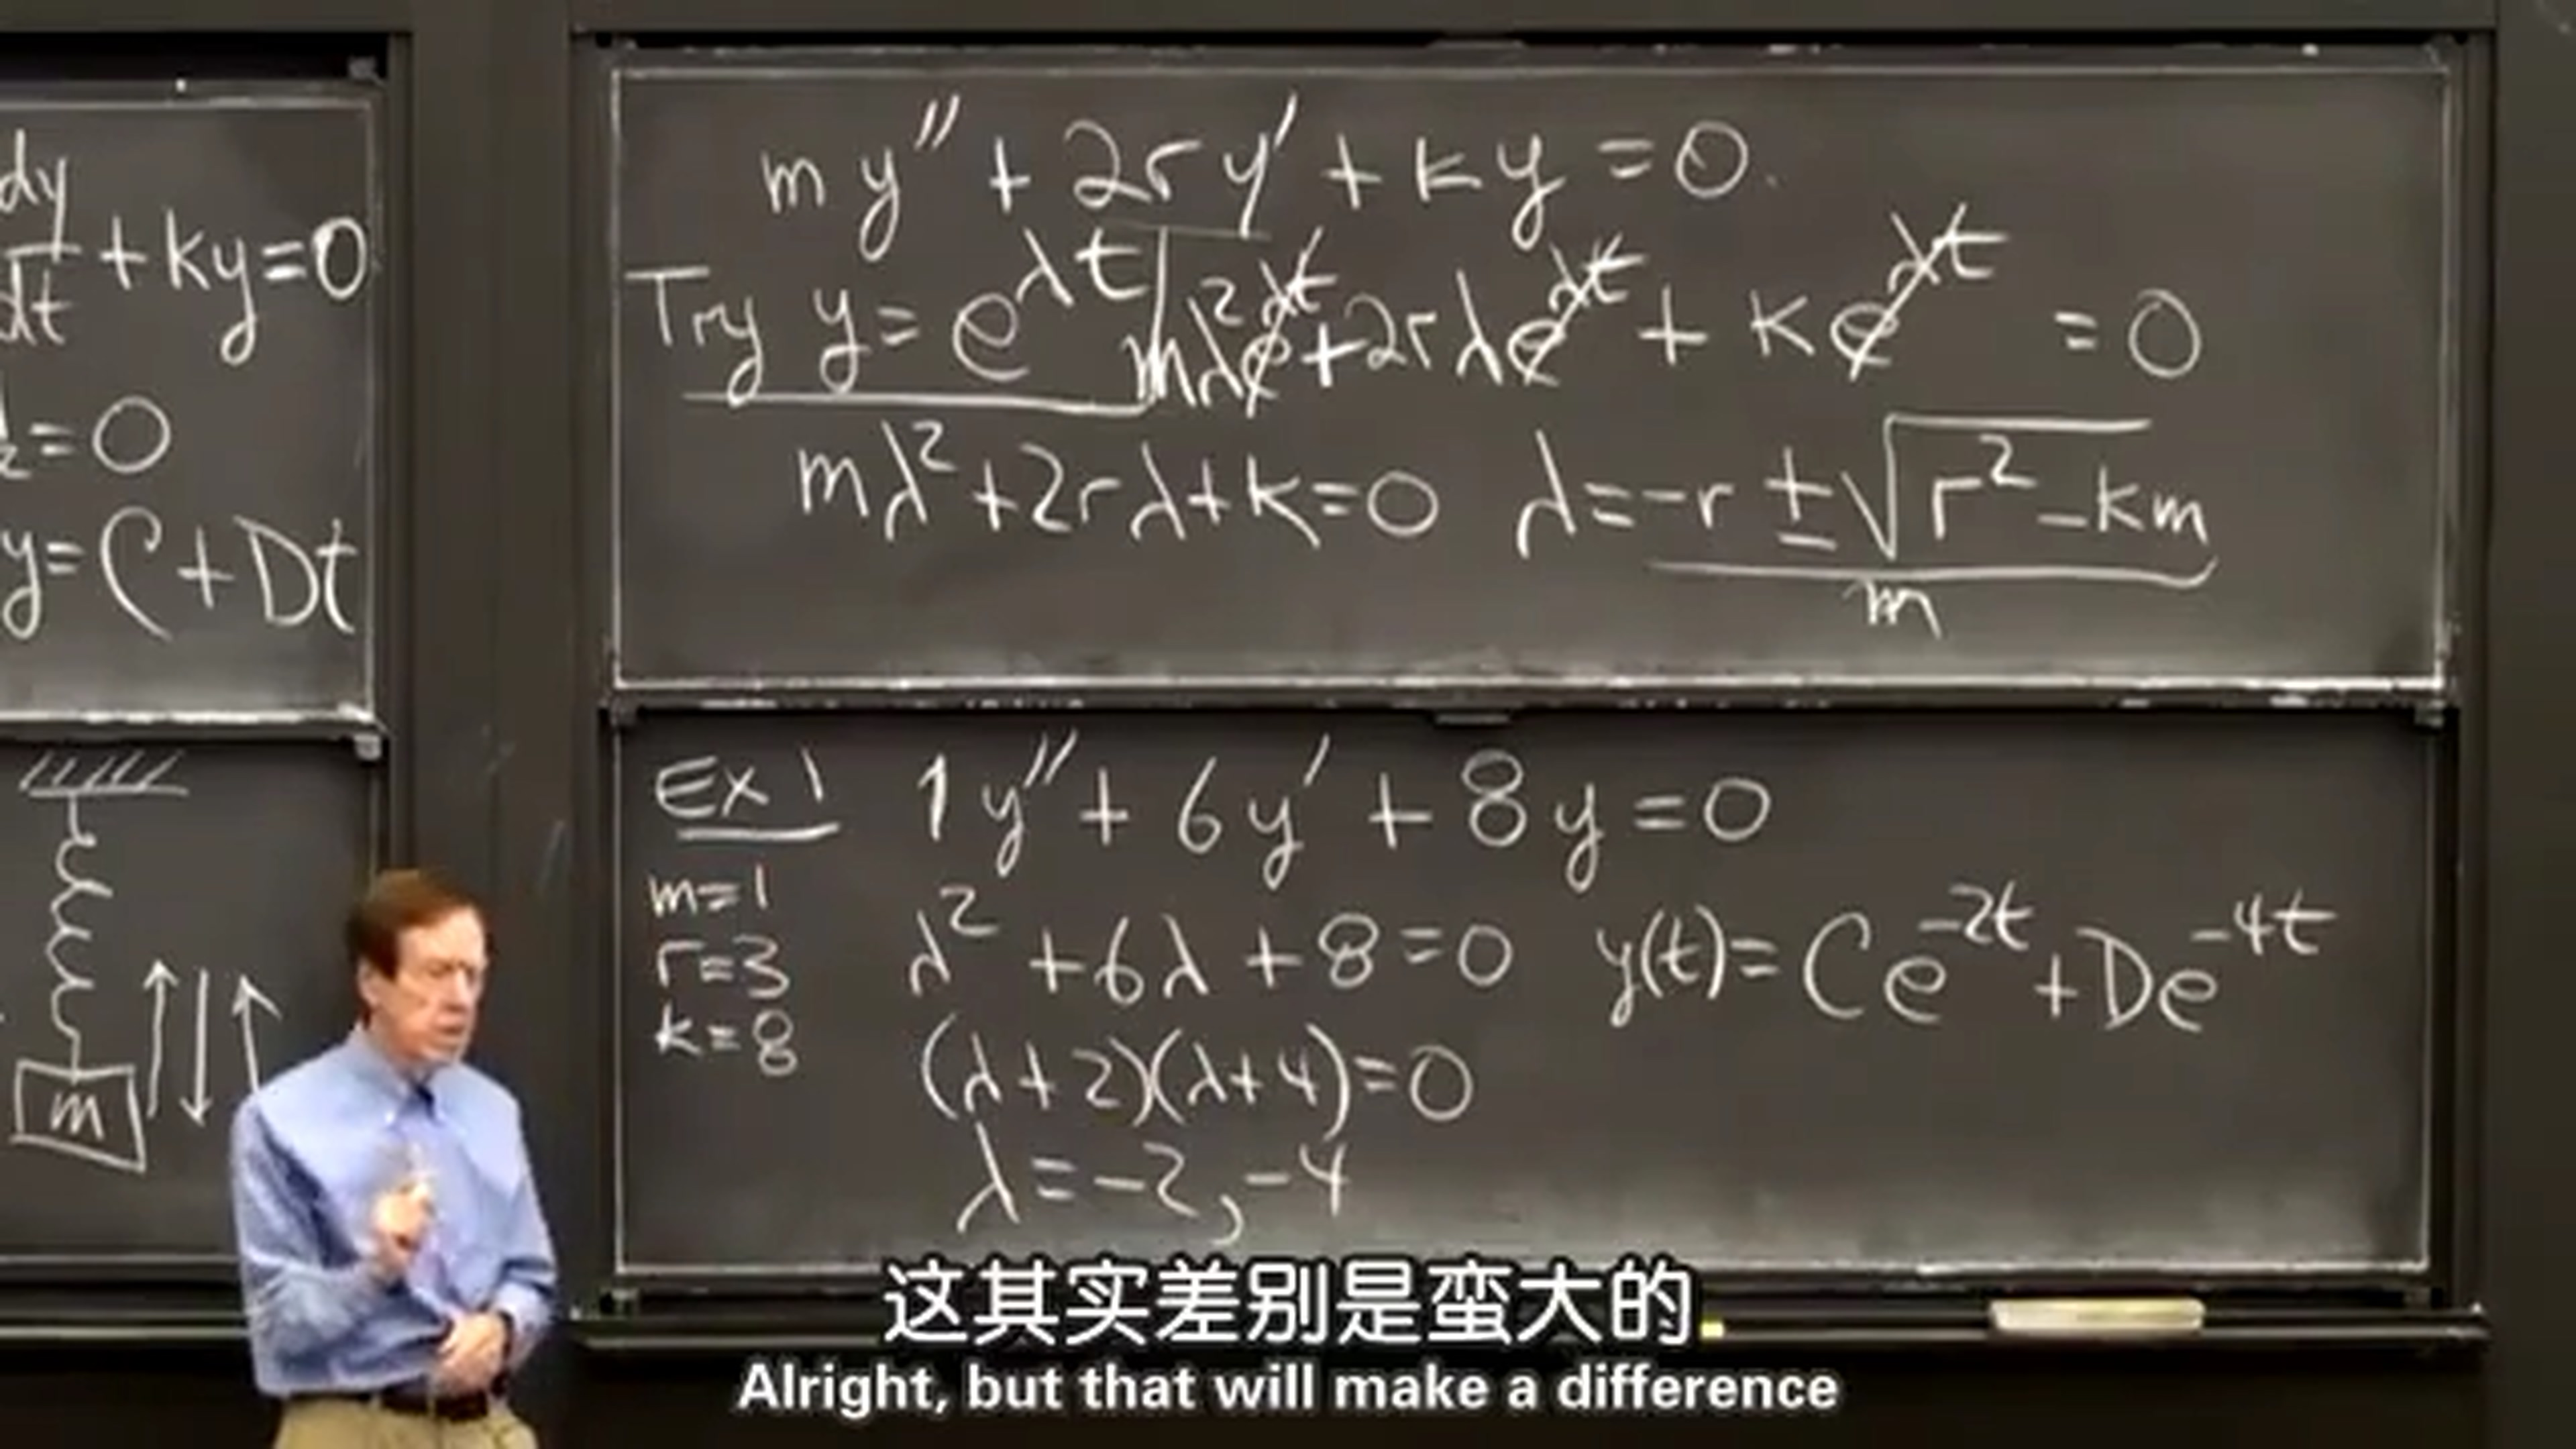 dy
dt +ky=0
2=0
y=C+Dt
m
my″+2ry′+ky=0.
Try y=e^λt mλ²e^λt+2rλe^λt+ke^λt=0
mλ²+2rλ+k=0 λ=-r±√r²-km
m
Ex 1 1y″+6y′+8y=0
m=1
r=3
k=8
λ²+6λ+8=0 y(t)=Ce^-2t+De^-4t
(λ+2)(λ+4)=0
λ=-2,-4
这其实差别是蛮大的
Alright, but that will make a difference